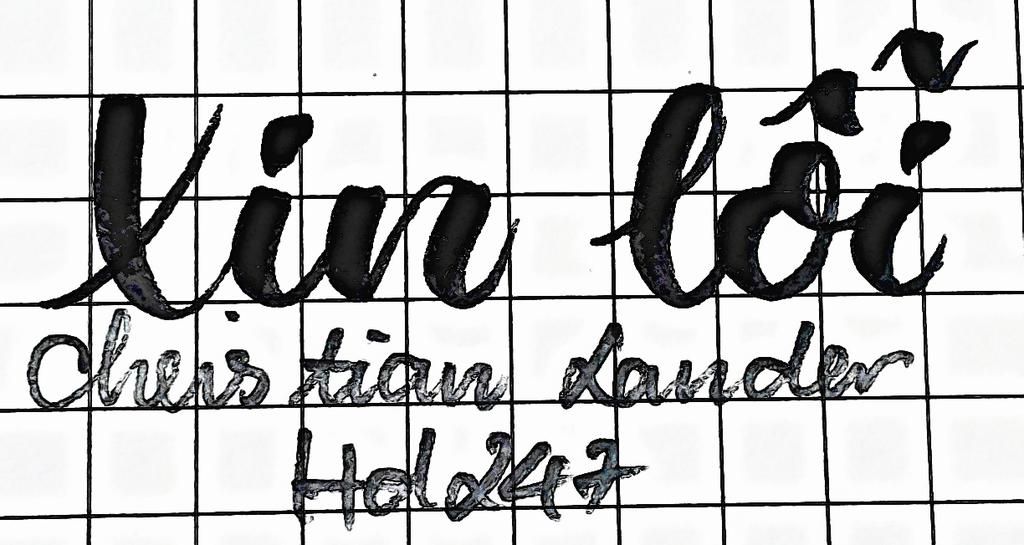 Xin lỗi
Christian Lander
Hol247